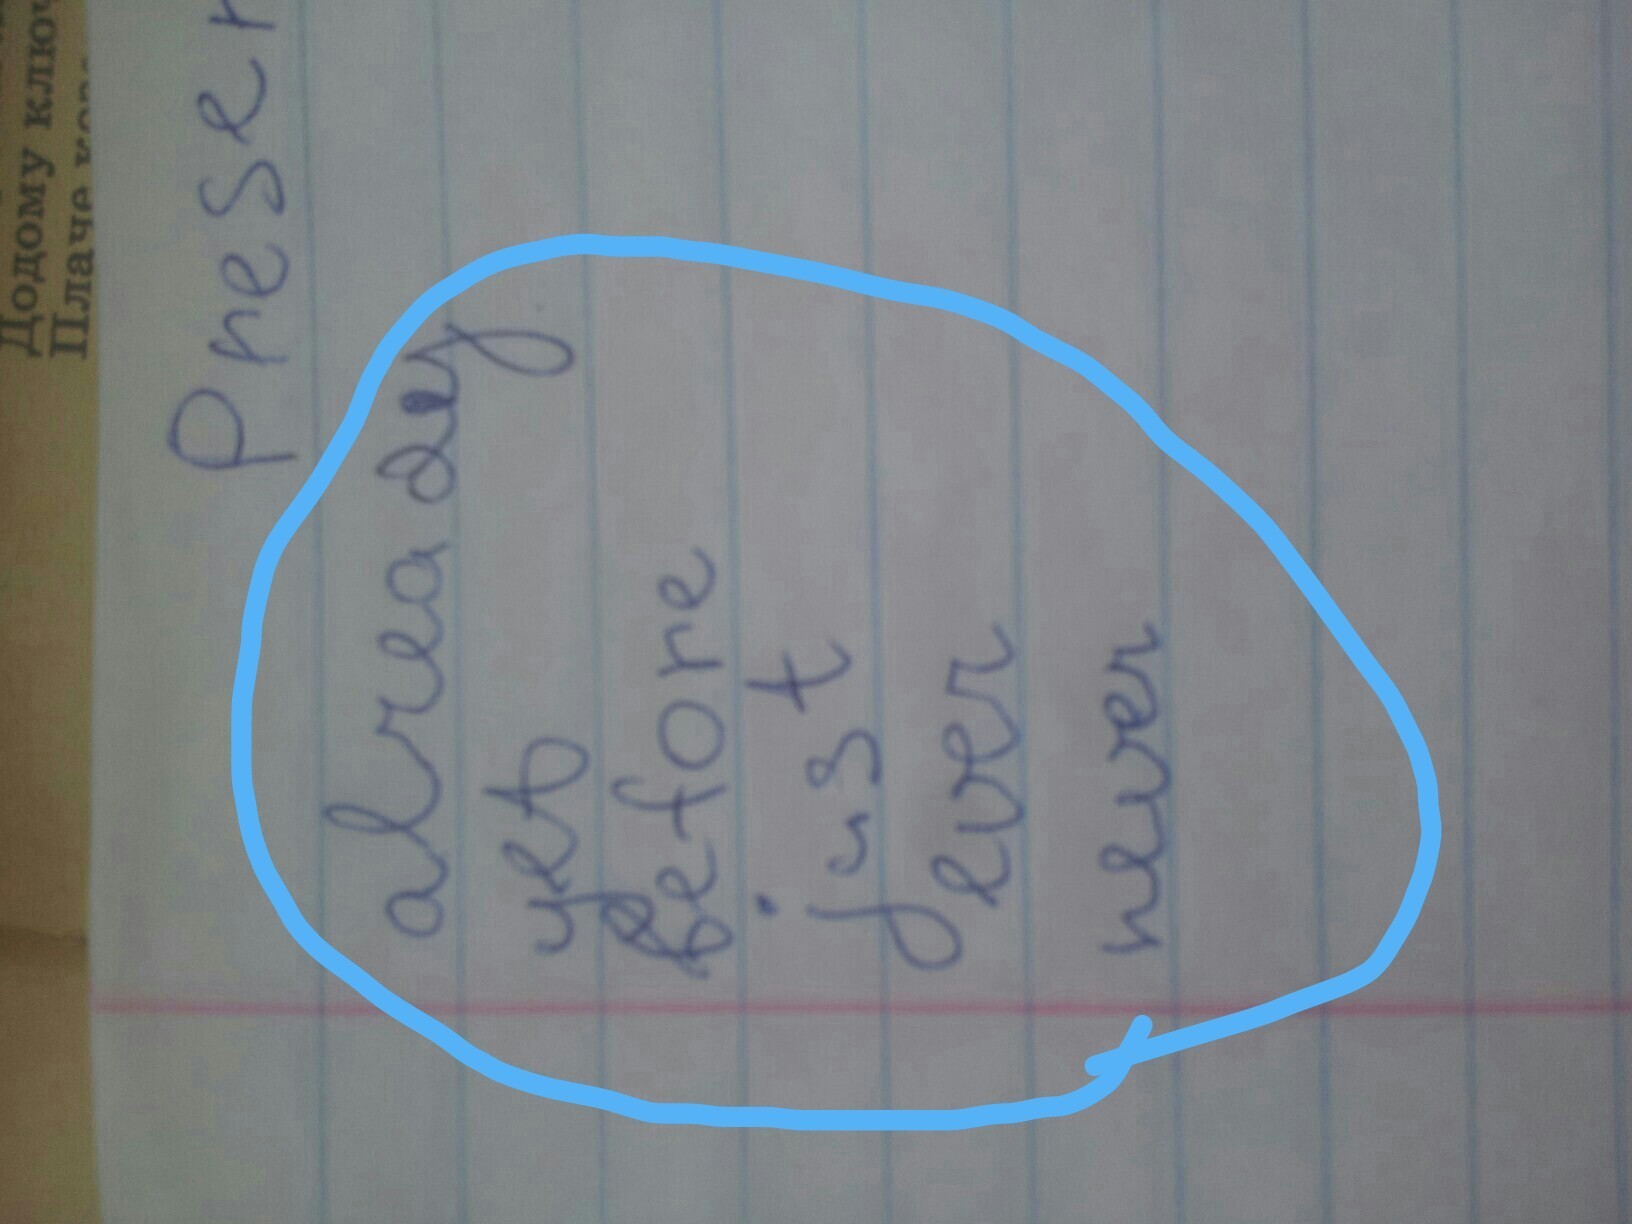 Додому ключ
Плаче
Presen
already
yet
before
just
ever
never